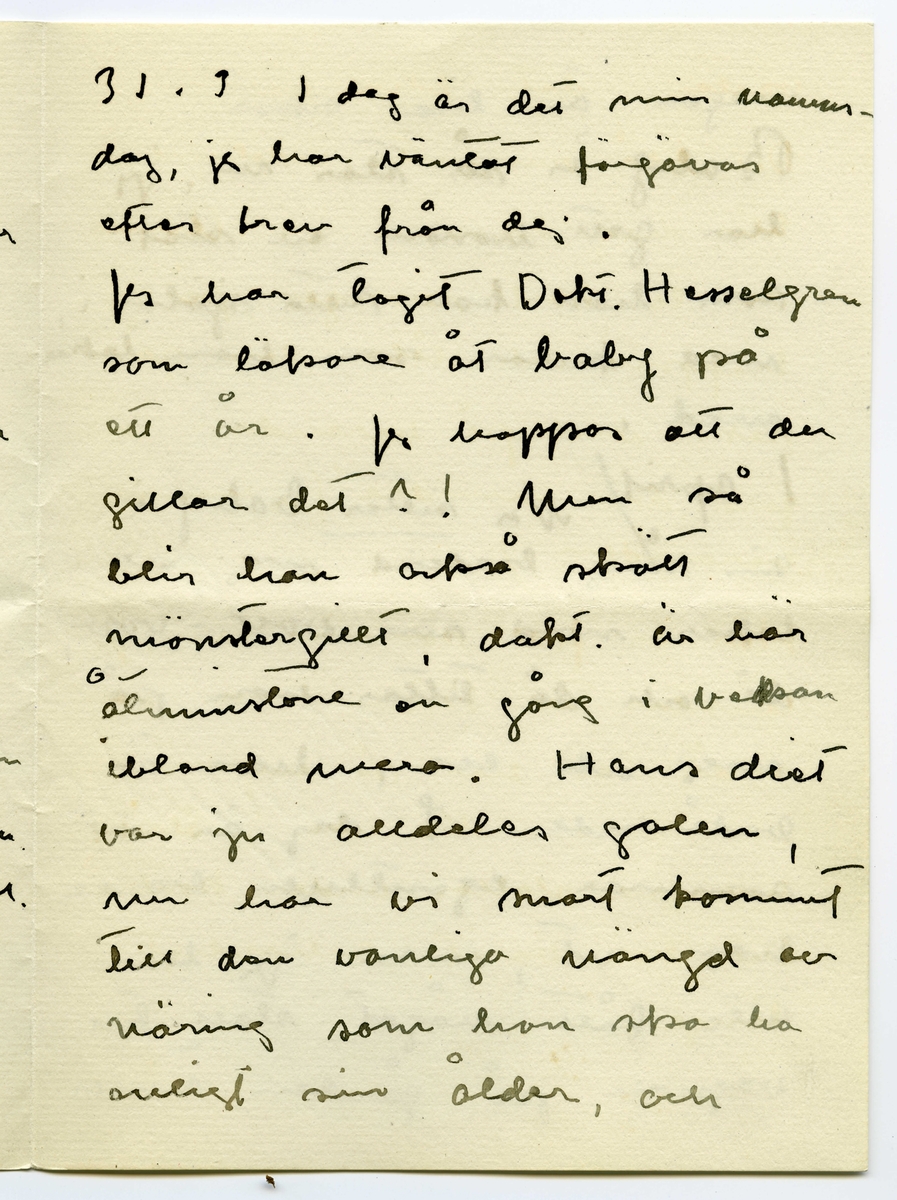 31.3 I dag är det min namns-
dag, jg har väntat förgävas
efter brev från dej.
Jg har tagit Dokt. Hesselgren
som läkare åt baby på
ett år. Jg hoppas att du
gillar det?! Men så
blir han också skött
mönstergillt, dokt. är här
åtminstone en gång i veckan
ibland mera. Hans diet
var ju alldeles galen,
nu har vi snart kommit
till den vanliga mängd av
näring som han ska ha
enligt sin ålder, och